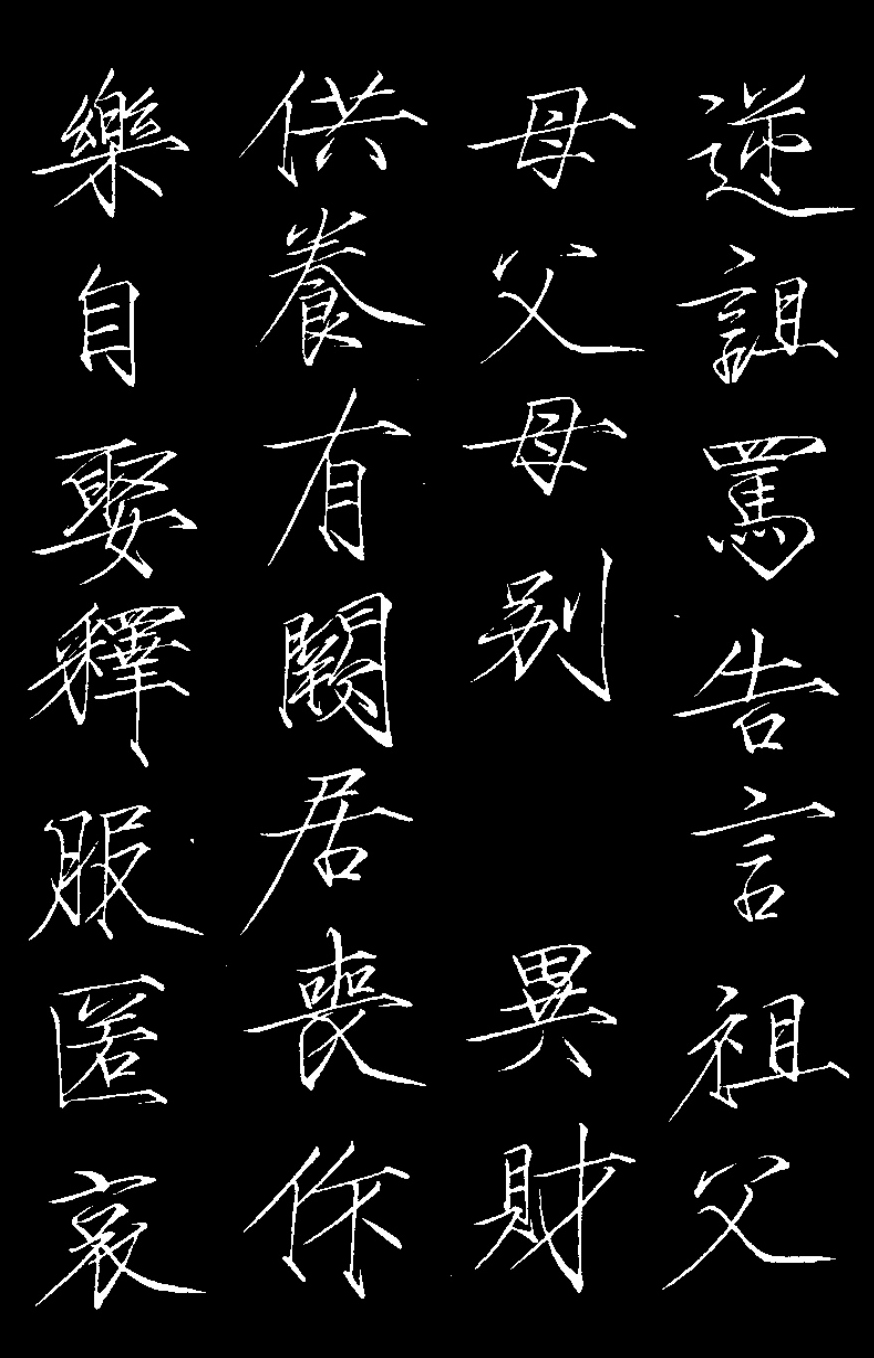 逆詛罵告言祖父
母父母别 異財
供養有闕居喪作
樂自娶釋服匿哀